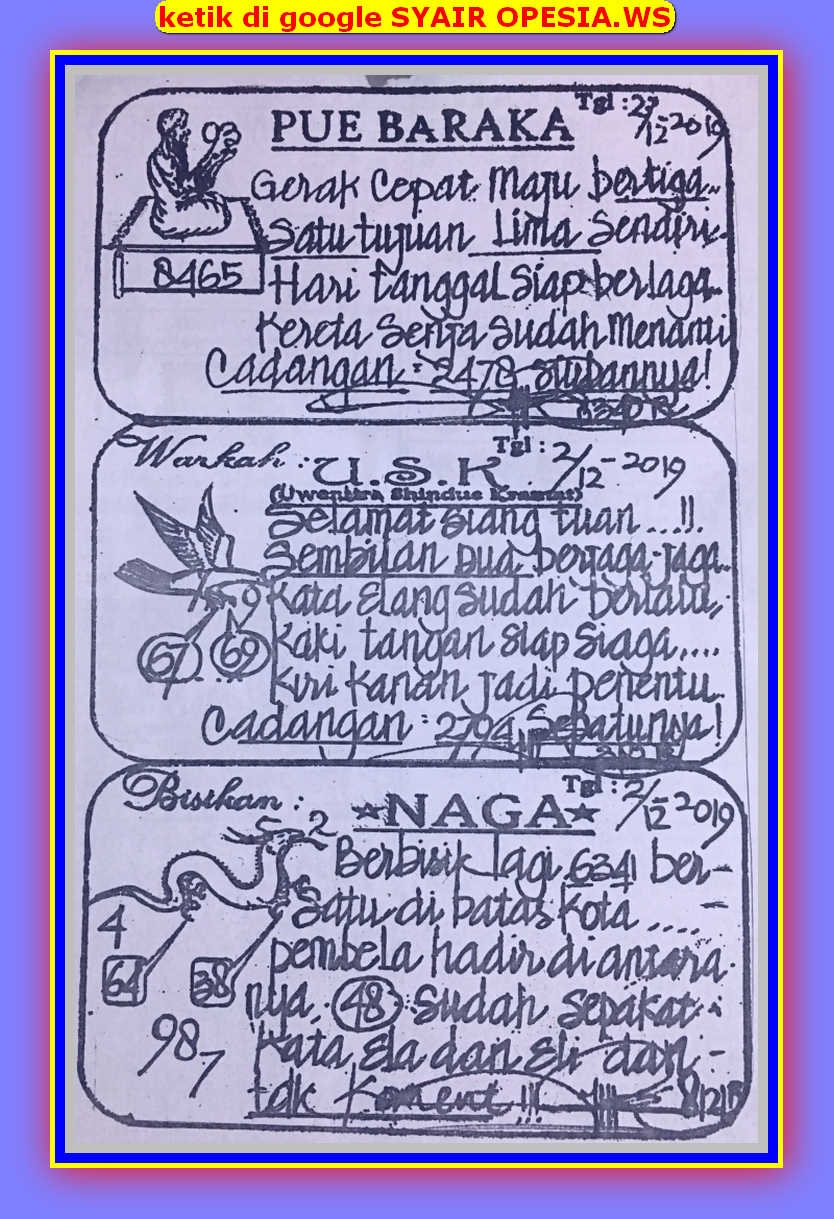 ketik di google SYAIR OPESIA.WS
Tgl : 2/12-2019
PUE BARAKA
Gerak Cepat Maju bertiga..
Satu tujuan Lima Sendiri.
8465
Hari tanggal Siap berlaga..
Kereta Senja Sudah Menanti
Cadangan : 2478 Stubannya!
Warkah : U.S.K
Tgl : 2/12-2019
(Uwentira Shindue Kramat)
Selamat siang tuan...!!.
Sembilan Dua berjaga-jaga..
9 Kata Elang Sudah berlalu,
67 69
Kaki tangan Siap Siaga,...
Kiri Kanan jadi penentu.
Cadangan : 2794 Sepatunya!
Bisikan :
Tgl : 2/12-2019
NAGA
5 2
Berbisik lagi 6341 ber-
Satu di batas Kota ....
4
pembela hadir di antara
64 38
nya. 48 Sudah Sepakat.
987
Kata Ela dan Eli dan -
tdk Koment !!!